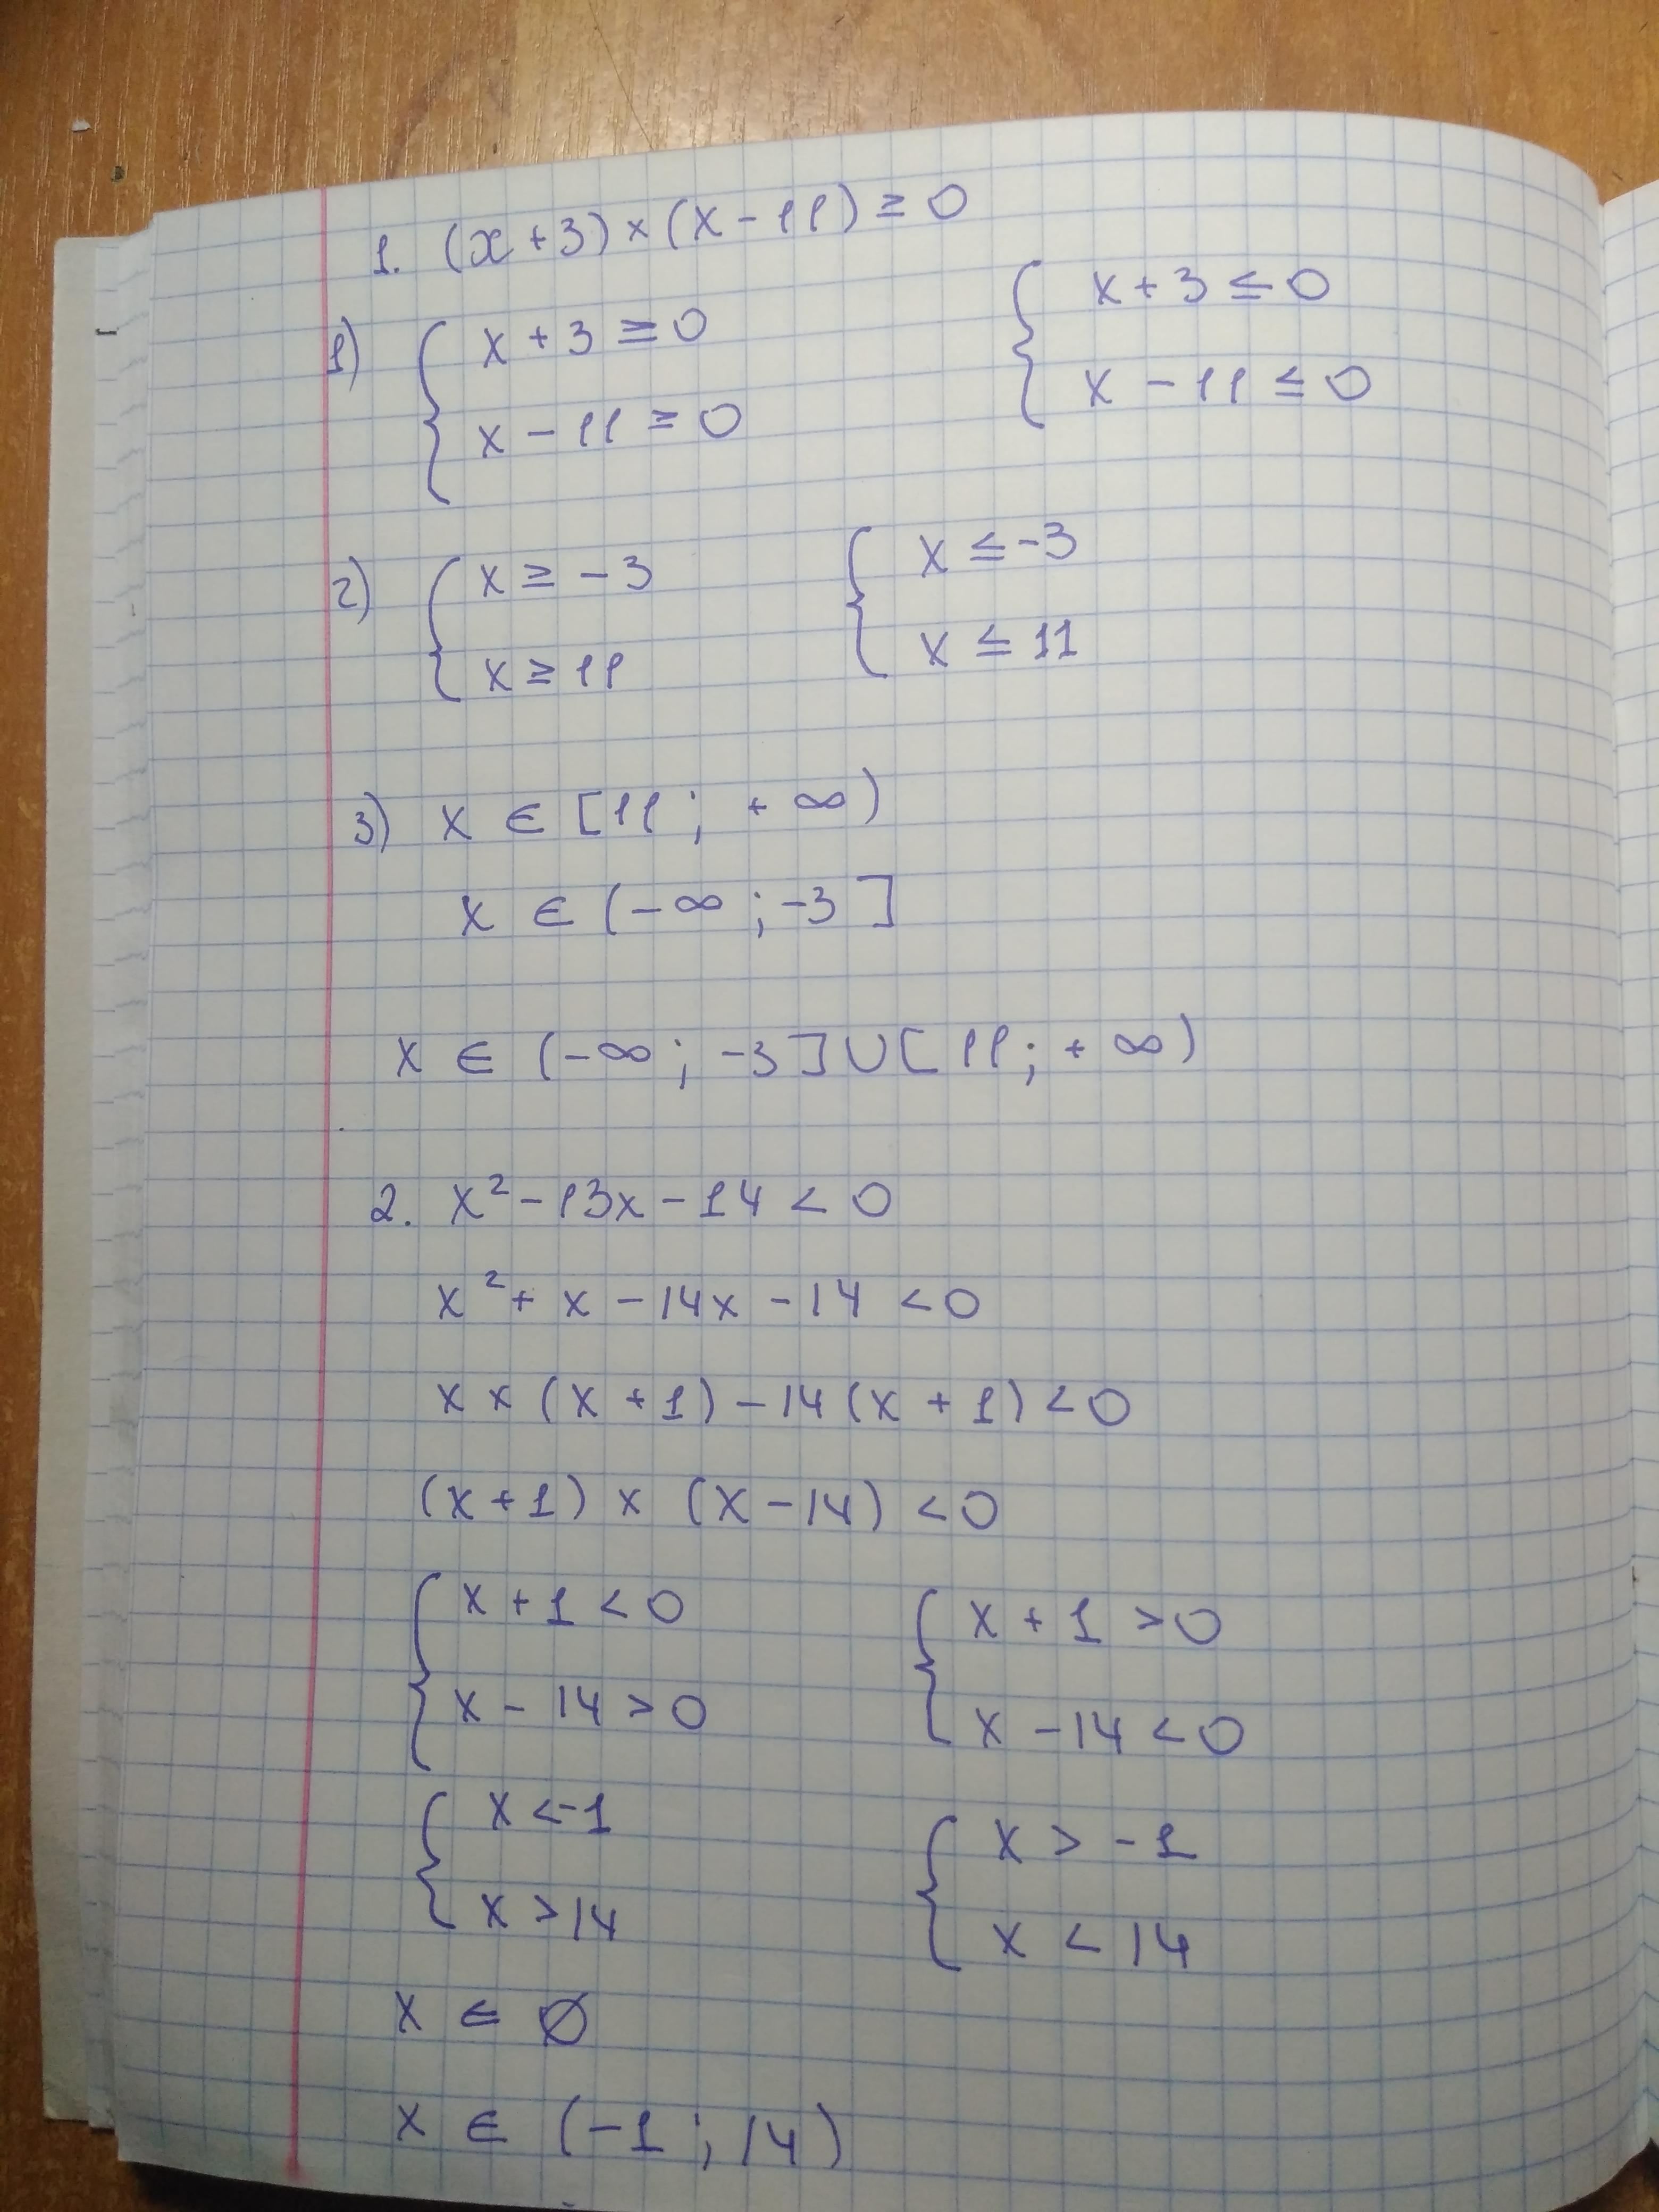 1. (x+3)×(x-11)≥0
1) { x+3≥0 { x+3≤0
x-11≥0 x-11≤0
2) { x≥-3 { x≤-3
x≥11 x≤11
3) x∈[11; +∞)
x∈(-∞; -3]
x∈(-∞; -3]∪[11; +∞)
2. x²-13x-14<0
x²+x-14x-14<0
x×(x+1)-14(x+1)<0
(x+1)×(x-14)<0
{ x+1<0 { x+1>0
x-14>0 x-14<0
{ x<-1 { x>-1
x>14 x<14
x∈∅
x∈(-1; 14)